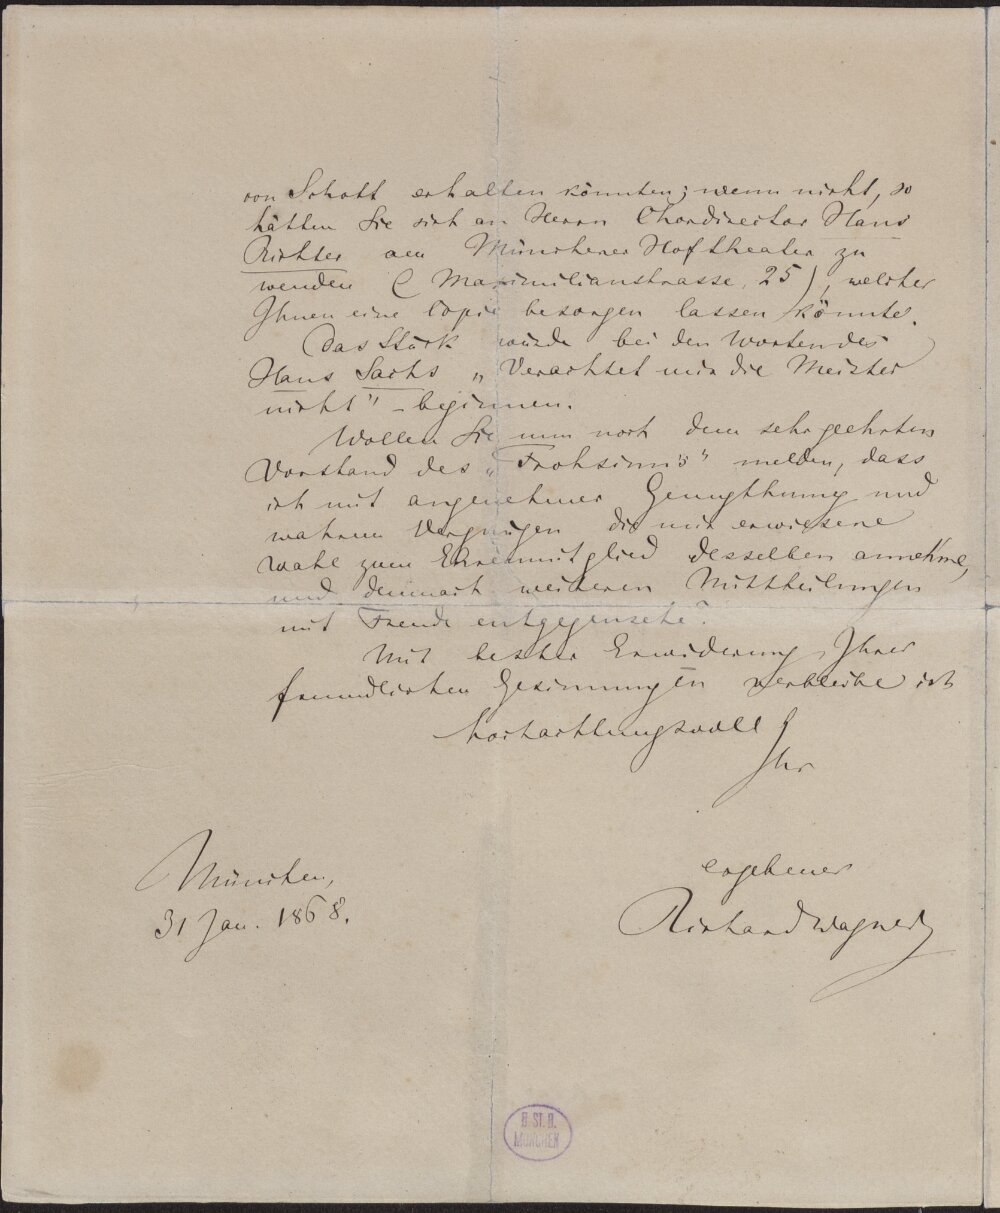 von Schott erhalten könnten; wenn nicht, so
hätten Sie sich an Herrn Chordirector Hans
Richter am Münchener Hoftheater zu
wenden (Maximilianstrasse, 25), welcher
Ihnen eine Copie besorgen lassen könnte.
Das Stück würde bei den Worten des
Hans Sachs „Verachtet mir die Meister
nicht" – beginnen.
Wollen Sie nun noch dem sehr geehrten
Vorstand des „Frohsinn's" melden, dass
ich mit angenehmer Genugthuung und
wahrem Vergnügen die mir erwiesene
Wahl zum Ehrenmitglied desselben annehme,
und demnach weiteren Mittheilungen
mit Freude entgegensehe.
Mit bester Erwiderung Ihrer
freundlichen Gesinnungen verbleibe ich
hochachtungsvoll
Ihr
ergebener
Richard Wagner
München,
31 Jan. 1868.
B. ST. B.
MÜNCHEN